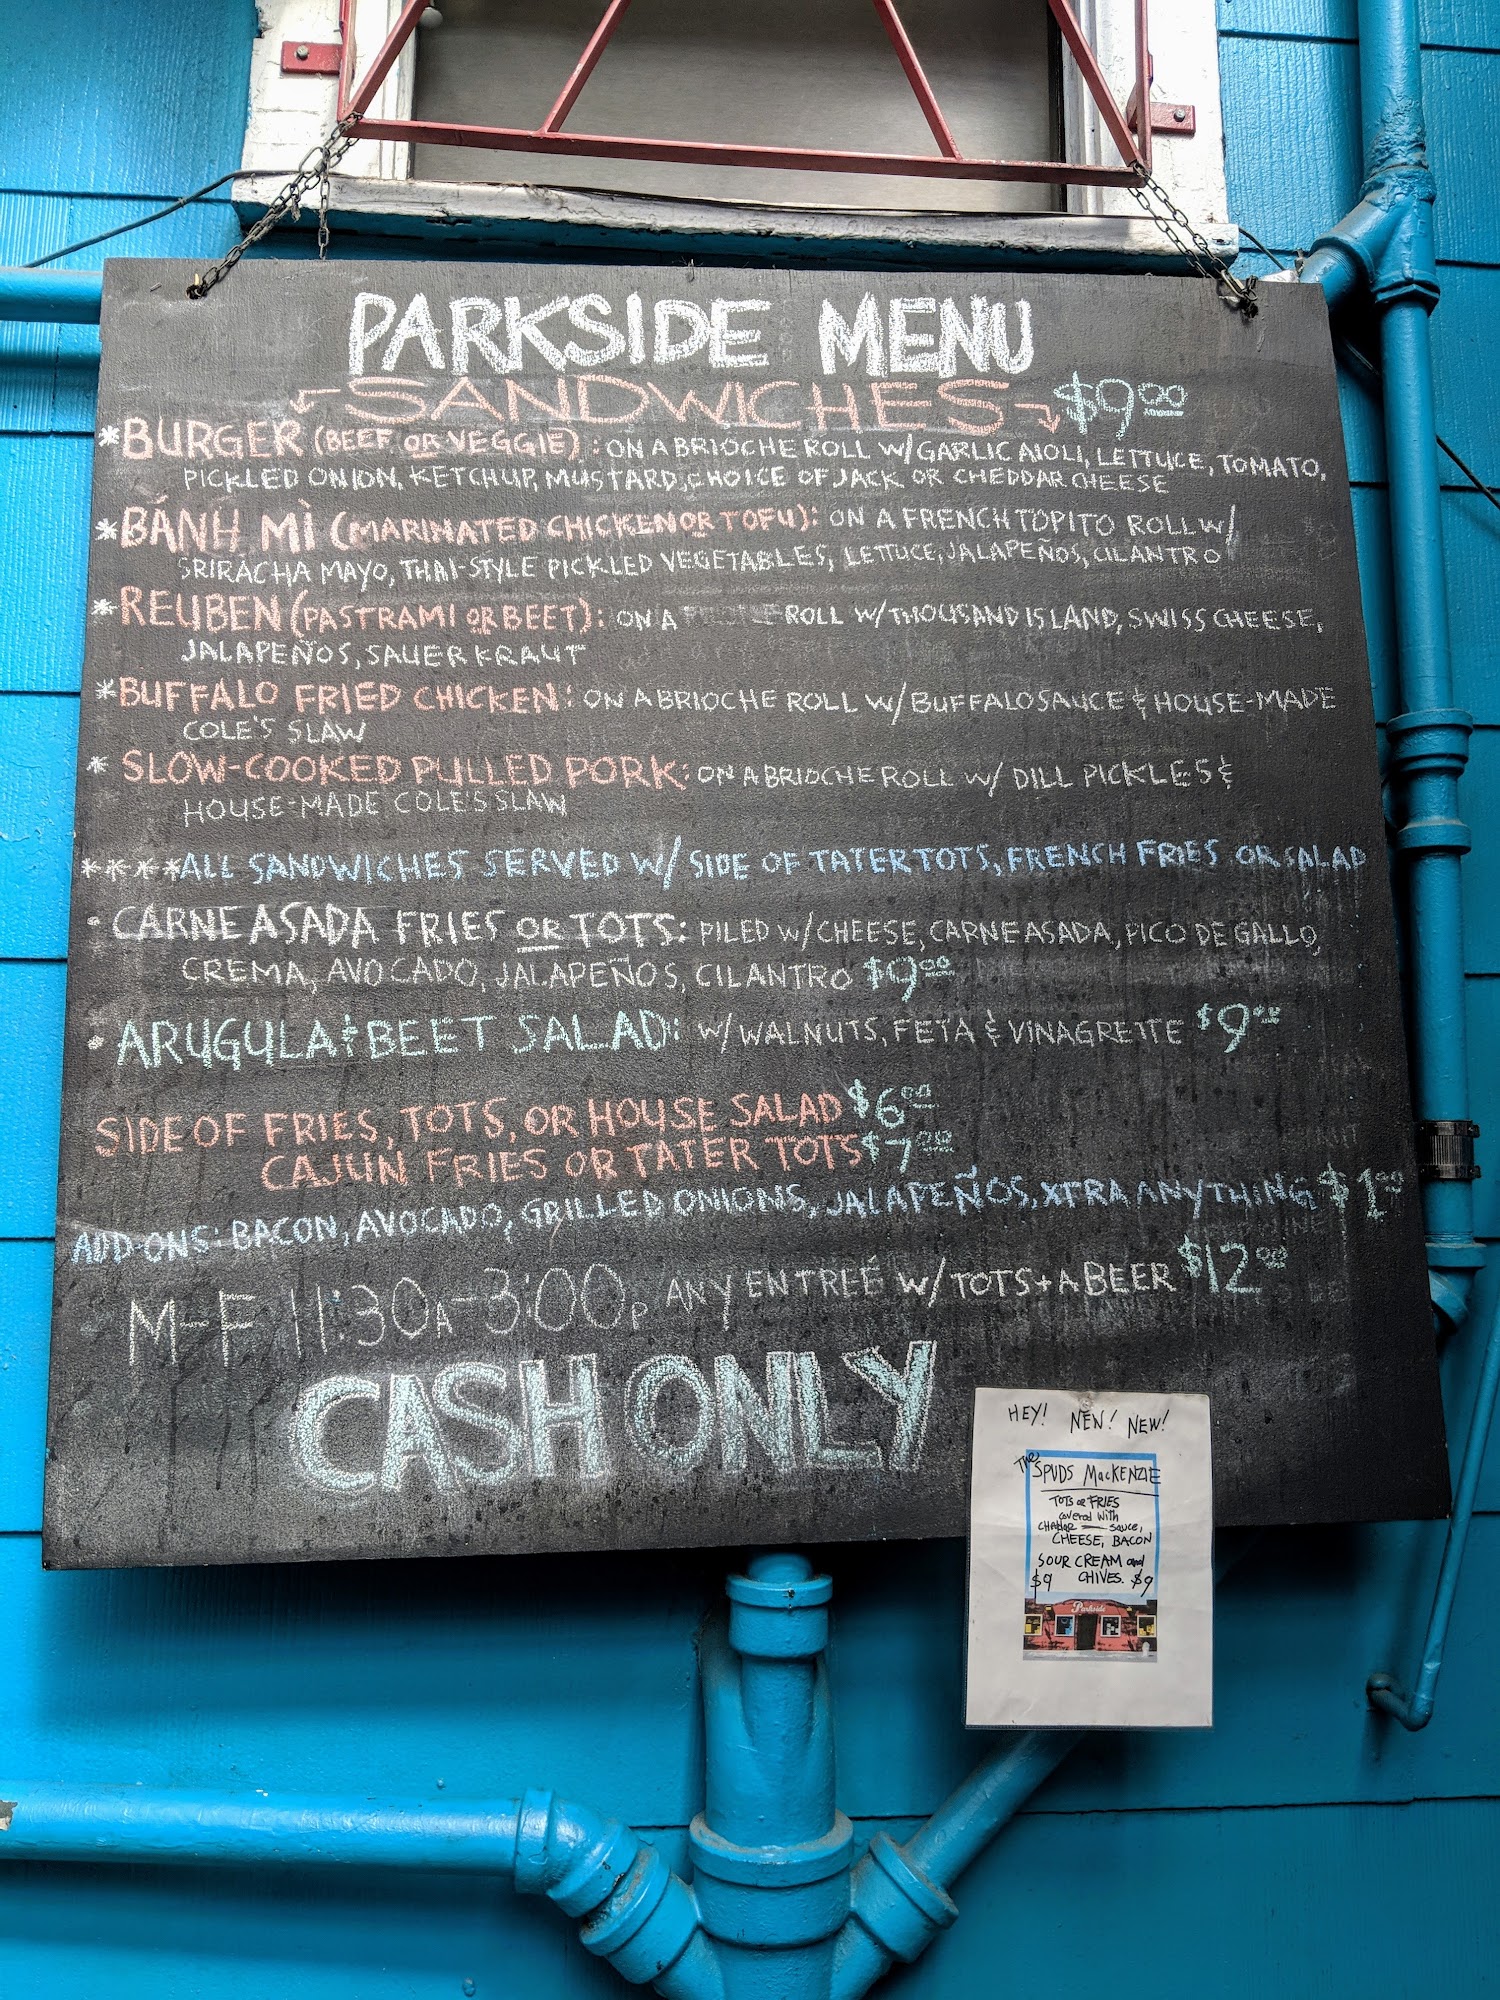 PARKSIDE MENU
SANDWICHES $9.00
*BURGER (BEEF OR VEGGIE): ON A BRIOCHE ROLL W/GARLIC AIOLI, LETTUCE, TOMATO,
PICKLED ONION, KETCHUP, MUSTARD, CHOICE OF JACK OR CHEDDAR CHEESE
*BÁNH MÌ (MARINATED CHICKEN OR TOFU): ON A FRENCH TOPITO ROLL W/
SRIRACHA MAYO, THAI-STYLE PICKLED VEGETABLES, LETTUCE, JALAPEÑOS, CILANTRO
*REUBEN (PASTRAMI OR BEET): ON A ROLL W/THOUSAND ISLAND, SWISS CHEESE,
JALAPEÑOS, SAUERKRAUT
*BUFFALO FRIED CHICKEN: ON A BRIOCHE ROLL W/BUFFALO SAUCE & HOUSE-MADE
COLE'S SLAW
* SLOW-COOKED PULLED PORK: ON A BRIOCHE ROLL W/ DILL PICKLES &
HOUSE-MADE COLE'S SLAW
****ALL SANDWICHES SERVED W/ SIDE OF TATER TOTS, FRENCH FRIES OR SALAD
• CARNE ASADA FRIES OR TOTS: PILED W/CHEESE, CARNE ASADA, PICO DE GALLO,
CREMA, AVOCADO, JALAPEÑOS, CILANTRO $9.00
• ARUGULA & BEET SALAD: W/WALNUTS, FETA & VINAGRETTE $9.00
SIDE OF FRIES, TOTS, OR HOUSE SALAD $6.00
CAJUN FRIES OR TATER TOTS $7.00
ADD-ONS: BACON, AVOCADO, GRILLED ONIONS, JALAPEÑOS, XTRA ANYTHING $1.00
M-F 11:30A-3:00P ANY ENTREÉ W/TOTS + A BEER $12.00
CASH ONLY
HEY! NEW! NEW!
THE SPUDS MACKENZIE
TOTS OR FRIES
covered with
sauce,
CHEESE, BACON
SOUR CREAM and
$9 CHIVES. $9
Parkside